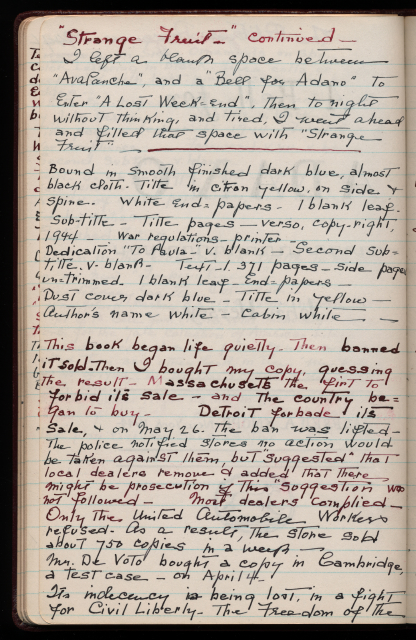 "Strange Fruit-" continued-
I left a blank space between
"Avalanche", and a "Bell for Adano" to
Enter "A Lost Week-end", Then to night
without thinking, and tired, I went ahead
and filled that space with "Strange
Fruit"
Bound in smooth finished dark blue, almost
black cloth. Title in citron yellow, on side &
spine. White End=papers- 1 blank leaf.
Sub-title- Title pages- verso, copy-right,
1944- War regulations- printer-
Dedication "To Paula- v. blank- Second sub=
title. v-blank- Text-1-371 pages- side pages
un=trimmed 1 blank leaf- End=papers-
Dust cover dark blue- Title in yellow-
Author's name white- Cabin white-
This book began life quietly. Then banned
it sold-Then I bought my copy, guessing
the result- Massachusetts the first to
forbid its sale- and the country be=
gan to buy- Detroit forbade its
sale, & on May 26- The ban was lifted-
The police notified stores no action would
be taken against them, but "suggested" that
local dealers remove & added that there
might be prosecution if this "suggestion was
not followed- Most dealers complied-
Only the United Automobile Workers
refused- As a result, the store sold
about 750 copies in a week-
Mr. De Voto bought a copy in Cambridge,
a test case- on April 4-
Its indecency is being lost, in a fight
for Civil Liberty- The Freedom of the